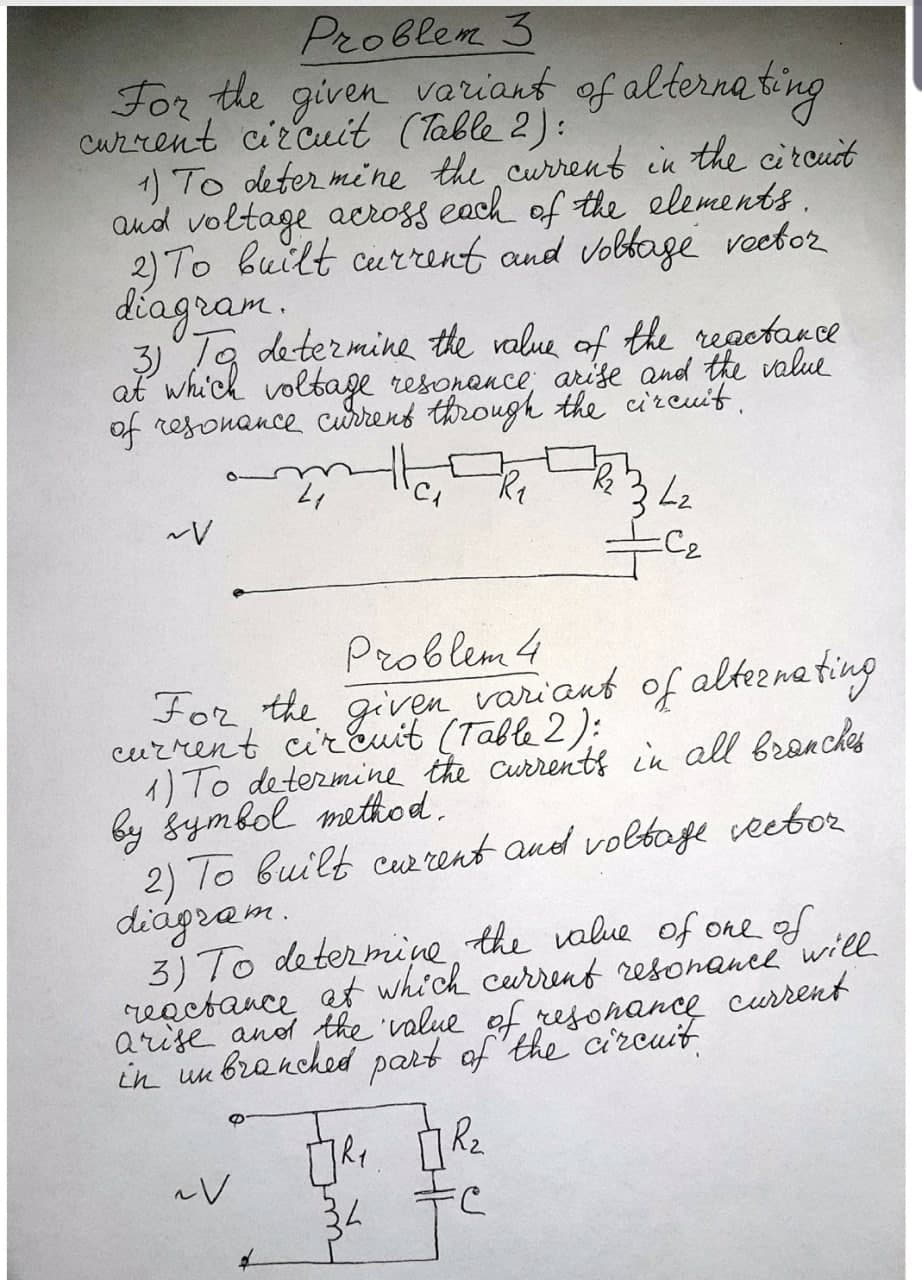 Problem 3
For the given variant of alternating
current circuit (Table 2):
1) To determine the current in the circuit
and voltage across each of the elements.
2) To built current and voltage vector
diagram.
3) To determine the value of the reactance
at which voltage resonance arise and the value
of resonance current through the circuit.
L1 C1 R1 R2 L2
~V
C2
Problem 4
For the given variant of alternating
current circuit (Table 2):
1) To determine the currents in all branches
by symbol method.
2) To built current and voltage vector
diagram.
3) To determine the value of one of
reactance at which current resonance will
arise and the value of resonance current
in unbranched part of the circuit.
R1 R2
~V
L C